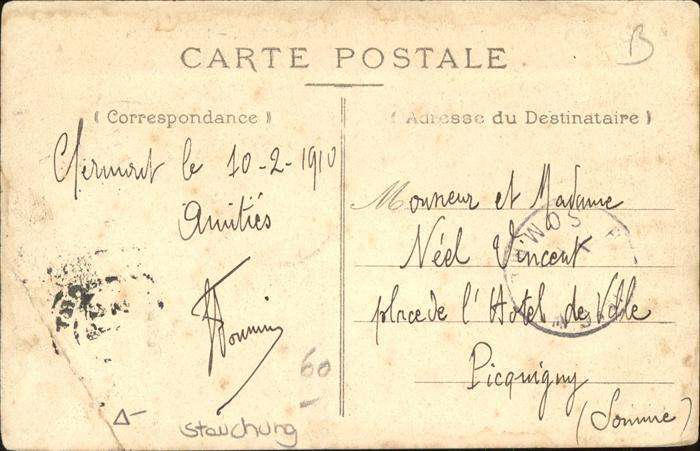 B
CARTE POSTALE
( Correspondance )
( Adresse du Destinataire )
Clermont le 10-2-1910
Amitiés
Monsieur et Madame
Néel Vincent
place de l'Hotel de Ville
Picquigny
(Somme)
SOMME
60
stauchung